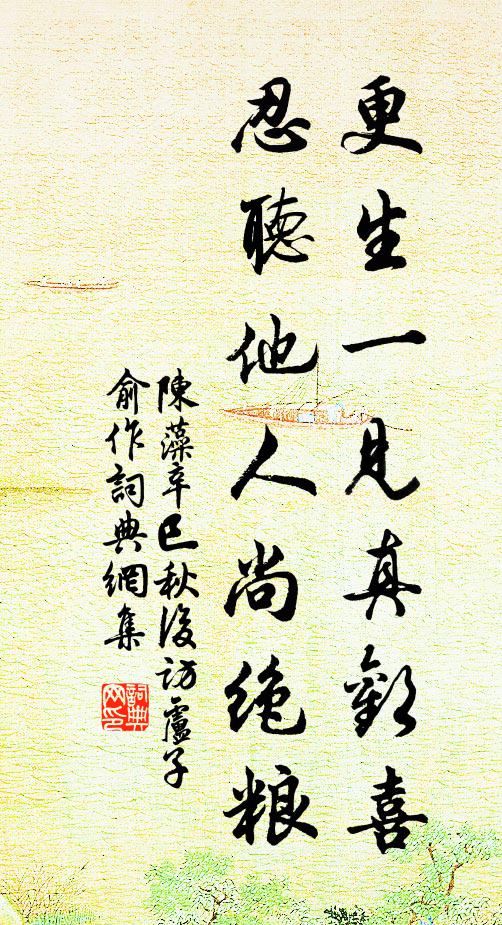 更生一見真歡喜
忍聽他人尚絶粮
陳藻辛巳秋後訪盧子
俞作詞典網集
詞典网印